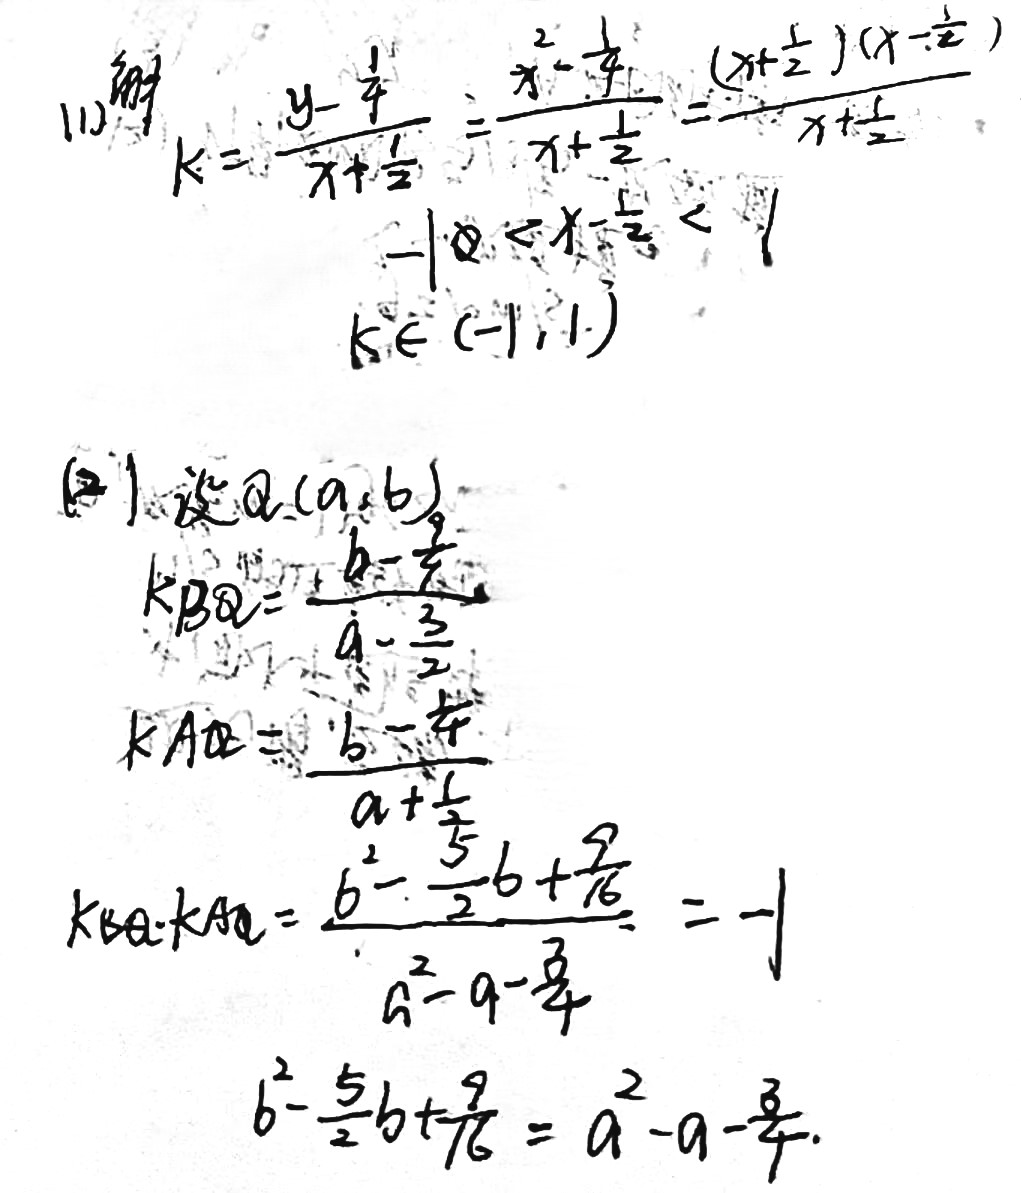 (1) 解 k = \frac{y - \frac{1}{4}}{x + \frac{1}{2}} = \frac{x^2 - \frac{1}{4}}{x + \frac{1}{2}} = \frac{(x + \frac{1}{2})(x - \frac{1}{2})}{x + \frac{1}{2}}
-1 < x - \frac{1}{2} < 1
k ∈ (-1, 1)
(2) 设 Q(a, b)
k BQ = \frac{b - \frac{9}{4}}{a - \frac{3}{2}}
k AQ = \frac{b - \frac{1}{4}}{a + \frac{1}{2}}
k BQ · k AQ = \frac{b^2 - \frac{5}{2}b + \frac{9}{16}}{a^2 - a - \frac{3}{4}} = -1
b^2 - \frac{5}{2}b + \frac{9}{16} = a^2 - a - \frac{3}{4}.